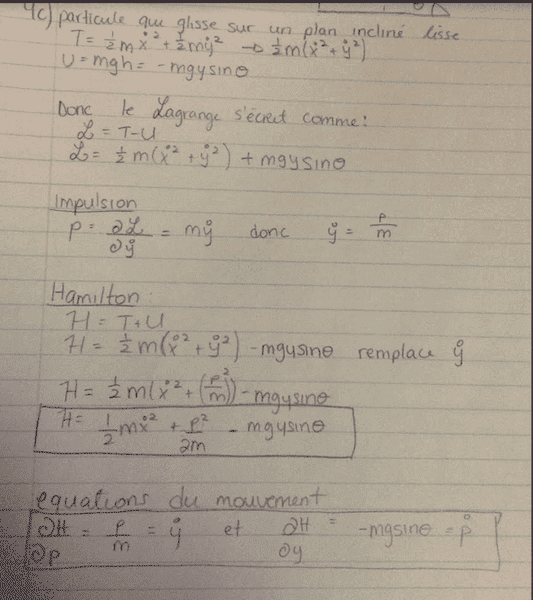 4c) particule que glisse sur un plan incliné lisse
T = ½ m ẋ² + ½ m ẏ² → ½ m(ẋ² + ẏ²)
U = mgh = -mgy sinθ
Donc le Lagrange s'écrit comme:
ℒ = T-U
ℒ = ½ m(ẋ² + ẏ²) + mgy sinθ
Impulsion
p = ∂ℒ/∂ẏ = mẏ donc ẏ = p/m
Hamilton:
H = T+U
H = ½ m(ẋ² + ẏ²) - mgy sinθ remplace ẏ
H = ½ m(ẋ² + (p/m)²) - mgy sinθ
H = ½ mẋ² + p²/2m - mgy sinθ
equations du mouvement
∂H/∂p = p/m = ẏ et ∂H/∂y = -mg sinθ = ṗ